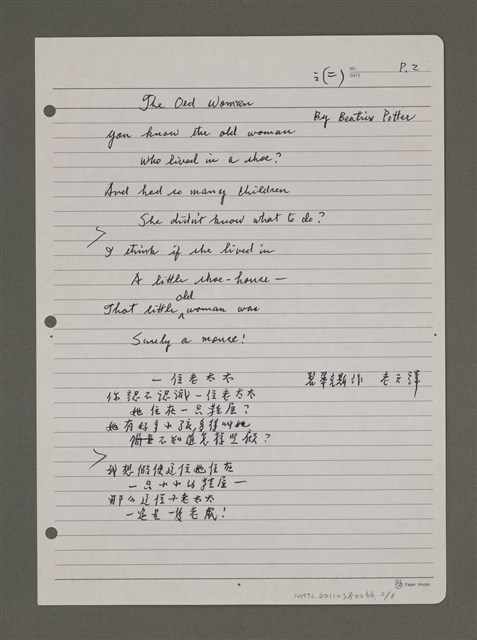 註(二) NO. DATE P.2
The Old Woman
By Beatrix Potter
You know the old woman
Who lived in a shoe?
And had so many children
She didn't know what to do?
I think if she lived in
A little shoe-house—
That little old woman was
Surely a mouse!
一位老太太
碧翠克斯作 老三譯
你認不認識一位老太太
她住在一只鞋屋?
她有好多小孩,多得叫她
簡直不知道怎樣照顧?
我想假使這位她住在
一只小小的鞋屋—
那么這位小老太太
一定是一隻老鼠!
Paper House
NMTL 2011 2/8